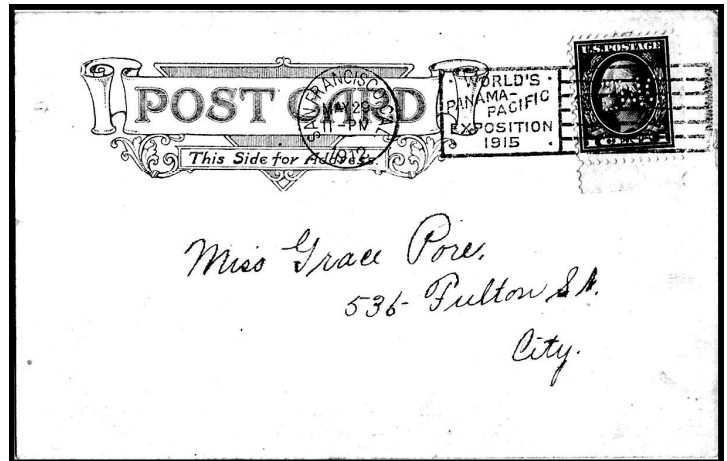 POST CARD
This Side for Address.
SAN FRANCISCO, CAL.
MAY 29
11-PM
1912
WORLD'S
PANAMA-
PACIFIC
EXPOSITION
1915
U.S.POSTAGE
CENT
Miss Grace Pore.
536 Fulton St.
City.